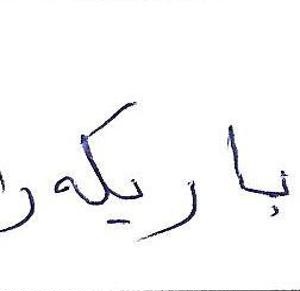 باریکه را